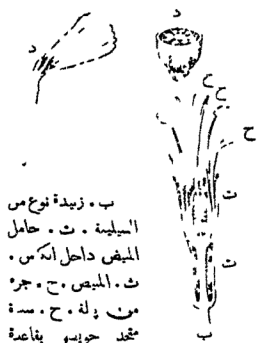 د
د
ح
ح
ح
ت
ث
ب
ب . زبدة نوع من
السيلينة . ت . حامل
المبيض داخل الكاس .
ث . المبيض . ح . جزء
من بتلة . ح . سداة
متحد بقاعدة